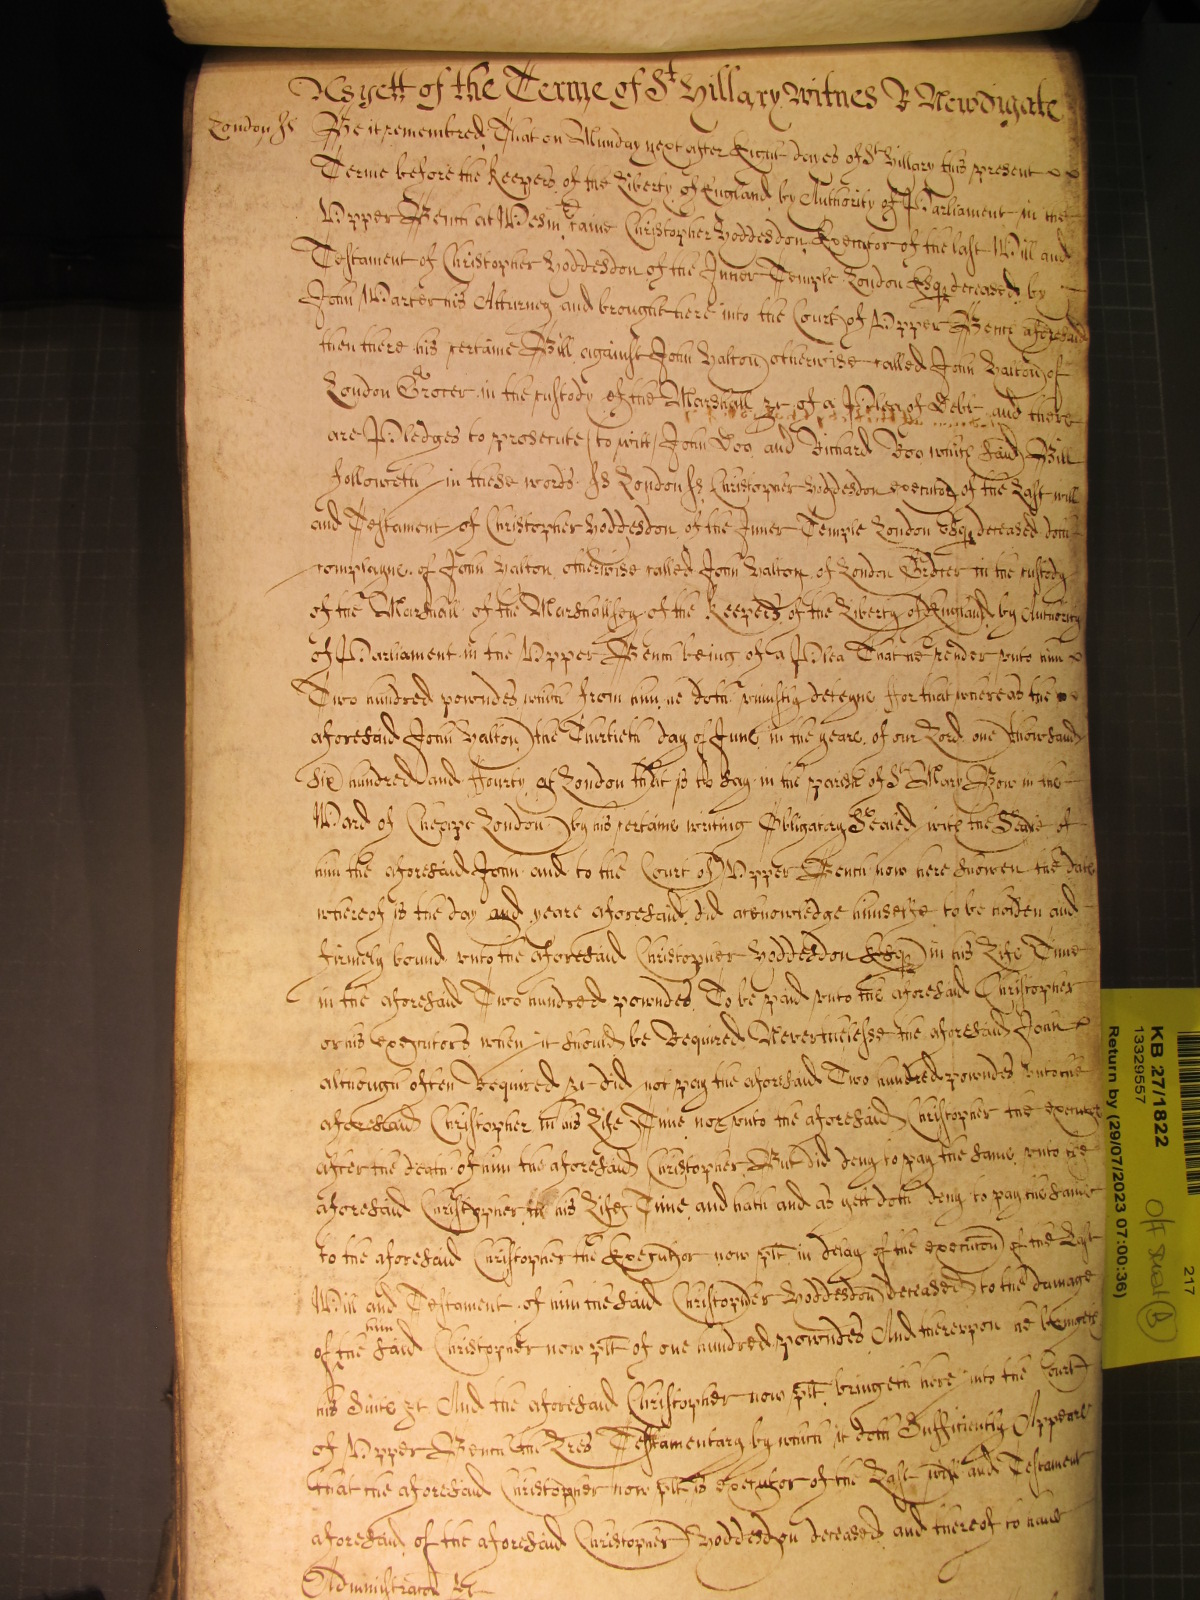 As yett of the Terme of St Hillary Witnes R Newdigate
London ss Be it remembred That on Munday next after Eight dayes of St Hillary this present
Terme before the Keepers of the Liberty of England by Authority of Parliament in the
Upper Bench at Westm came Christopher Hoddesdon Executor of the last Will and
Testament of Christopher Hoddesdon of the Inner Temple London Esqr deceased by
John Warter his Atturney and brought here into the Court of Upper Bench aforesaid
then there his certaine Bill against John Halton otherwise called John Halton of
London Grocer in the custody of the Marshall &c of a Plea of Debt and there
are Pledges to prosecute to witt John Doo and Richard Roo which said Bill
followeth in these words ss London ss Christopher Hoddesdon executor of the Last will
and Testament of Christopher Hoddesdon of the Inner Temple London Esqr deceased doth
complayne of John Halton otherwise called John Halton of London Grocer in the custody
of the Marshall of the Marshallsey of the Keepers of the Liberty of England by Authority
of Parliament in the Upper Bench being of a Plea That he render unto him
Two hundred powndes which from him he doth uniustly deteyne For that whereas the
aforesaid John Halton the Thirtieth day of June in the yeare of our Lord one thowsand
six hundred and Fourty at London that is to say in the parish of St Mary Bow in the
Ward of Cheape London by his certaine writing Obligatory Sealed with the Seale of
him the aforesaid John and to the Court of Upper Bench now here shewen the date
whereof is the day and yeare aforesaid did acknowledge himselfe to be holden and
firmely bound unto the aforesaid Christopher Hoddesdon Esqr in his Life Time
in the aforesaid Two hundred powndes To be paid unto the aforesaid Christopher
or his executors when it should be Required Neverthelesse the aforesaid John
although often Required &c did not pay the aforesaid Two hundred powndes unto the
aforesaid Christopher in his Life Time nor unto the aforesaid Christopher the executor
after the death of him the aforesaid Christopher But did deny to pay the same unto the
aforesaid Christopher in his Life Time and hath and as yett doth deny to pay the same
to the aforesaid Christopher the Executor now plt in delay of the execucon of the Last
Will and Testament of him the said Christopher Hoddesdon deceased to the damage
of him the said Christopher now plt of one hundred powndes And thereupon he bringeth
his Suite &c And the aforesaid Christopher now plt bringeth here into the Court
of Upper Bench the Lres Testamentary by which it doth Sufficiently Appeare
that the aforesaid Christopher now plt is executor of the Last will and Testament
aforesaid of the aforesaid Christopher Hoddesdon deceased and thereof to have
Administracon &c
217
KB 27/1822
13329557
Return by (29/07/2023 07:00:36)